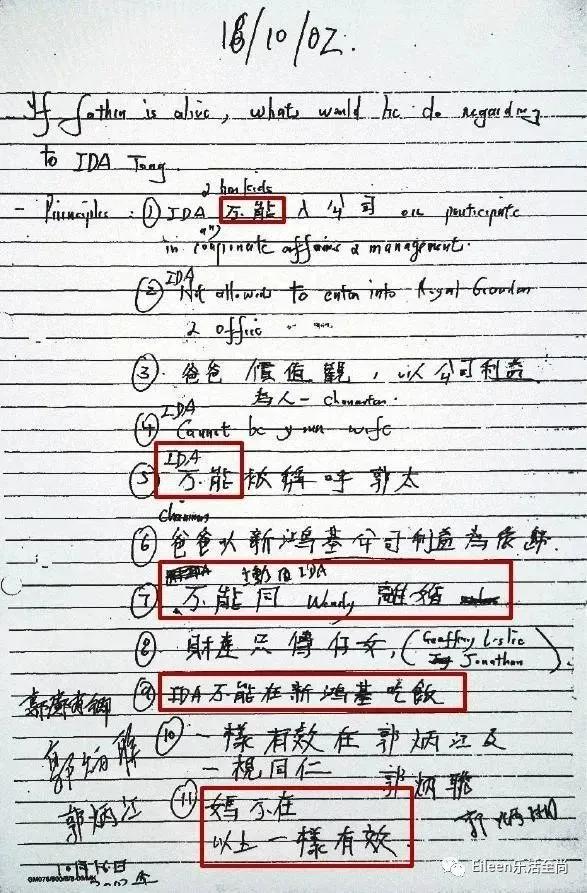 16/10/02.
If father is alive, what would he do regarding
to IDA Tang.
2 her kids
- Principles : ① IDA 不能 入公司 or participate
any
in corporate affairs & management.
IDA
② Not allowed to enter into Royal Garden
& office
③ 爸爸 價值觀，以公司利益
為人 - character.
IDA
④ Cannot be your wife
IDA
⑤ 不能被稱呼郭太
chairman
⑥ 爸爸以新鴻基公司利益為依歸.
主動因 IDA
⑦ 不能同 Wendy 離婚
⑧ 財產只傳仔女, (Geoffrey Leslie
Jonathan)
⑨ IDA 不能在新鴻基吃飯
⑩ 一樣有效在郭炳江及
一視同仁 郭炳聯
郭炳聯
郭炳江
⑪ 媽不在
以上一樣有效.
郭炳湘
10月16日
2002年
Eileen乐活至尚